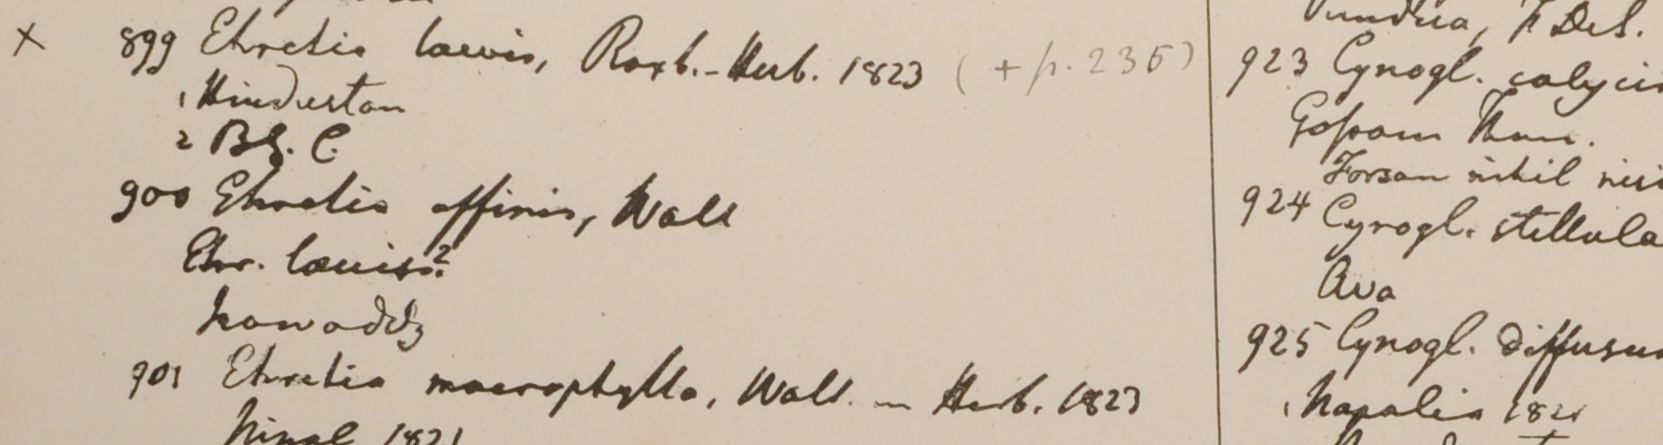 x 899 Ehretia laevis, Roxb. - Herb. 1823 (+ p. 235)
1 Hindustan
2 B.G. C.
900 Ehretia affinis, Wall
Ehr. laevis?
Irawaddy
901 Ehretia macrophylla, Wall. - Herb. 1823
Nipal 1821
Pundua, F. DeS.
923 Cynogl. calycin
Forsan nihil nisi
924 Cynogl. stellula
Ava
925 Cynogl. diffusu
1 Napalia 1821